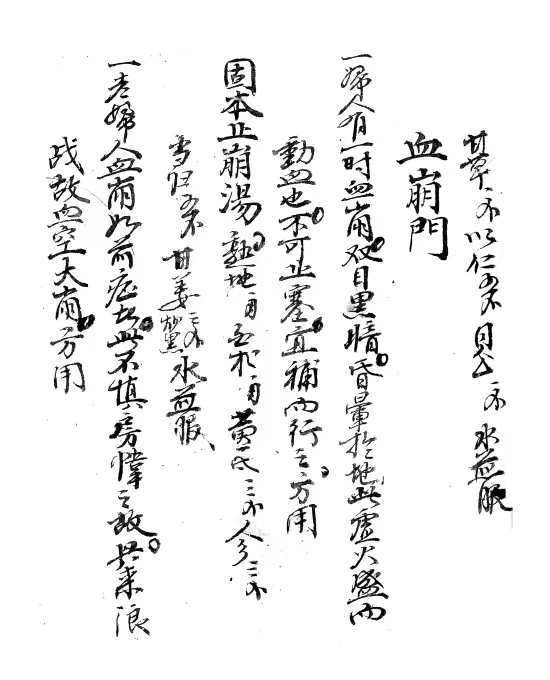 甘草一不 以仁五不 貝母一不 水煎服
血崩門
一婦人有一時血崩双目黒暗昏暈於地此虚火盛而
動血也不可止塞宜補而行之方用
固本止崩湯 熟地一両 白朮一両 黄芪三不 人参三不
當归五不 甘姜炒黒二不 水煎服
一老婦人血崩如前症者此不慎房幃之故
战故血空大崩方用